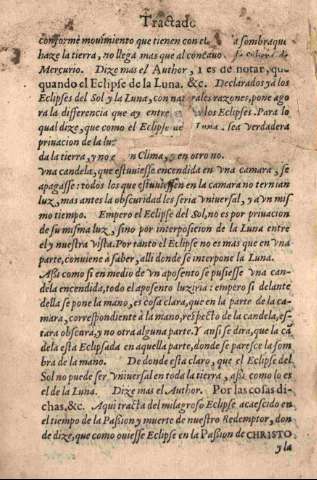 Tractado
conforme mouimiento que tienen con el a sombra que
haze la tierra, no llega mas que al concauo
Mercurio. Dize mas el Author, 1 es de notar, que
quando el Eclipse de la Luna, &c. Declarados ya los
Eclipses del Sol y la Luna, con naturales razones, pone ago
ra la differencia que ay entre los Eclipses. Para lo
qual dize, que como el Eclipse de Luna sea verdadera
priuacion de la luz
da la tierra, y no en vn Clima, y en otro no.
vna candela, que estuuiesse encendida en vna camara, se
apagasse: todos los que estuuiessen en la camara no ternian
luz, mas antes la obscuridad les seria vniuersal, y a vn mis
mo tiempo. Empero el Eclipse del Sol, no es por priuacion
de su misma luz, sino por interposicion de la Luna entre
el y nuestra vista. Por tanto el Eclipse no es mas que en vna
parte, conuiene à saber, alli donde se interpone la Luna.
Assi como si en medio de vn aposento se pusiesse vna can-
dela encendida, todo el aposento luziria: empero si delante
della se pone la mano, es cosa clara, que en la parte de la ca-
mara, correspondiente à la mano, respecto de la candela, es-
tara obscura, y no otra alguna parte. Y ansi se dira, que la cã
dela està Eclipsada en aquella parte, donde se paresce la som
bra de la mano. De donde esta claro, que el Eclipse del
Sol no puede ser Vniuersal en toda la tierra, assi como lo es
el de la Luna. Dize mas el Author. Por las cosas di-
chas, &c. Aqui tracta del milagroso Eclipse acaescido en
el tiempo de la Passion y muerte de nuestro Redemptor, don
de dize, que como ouiesse Eclipse en la Passion de CHRISTO
y la